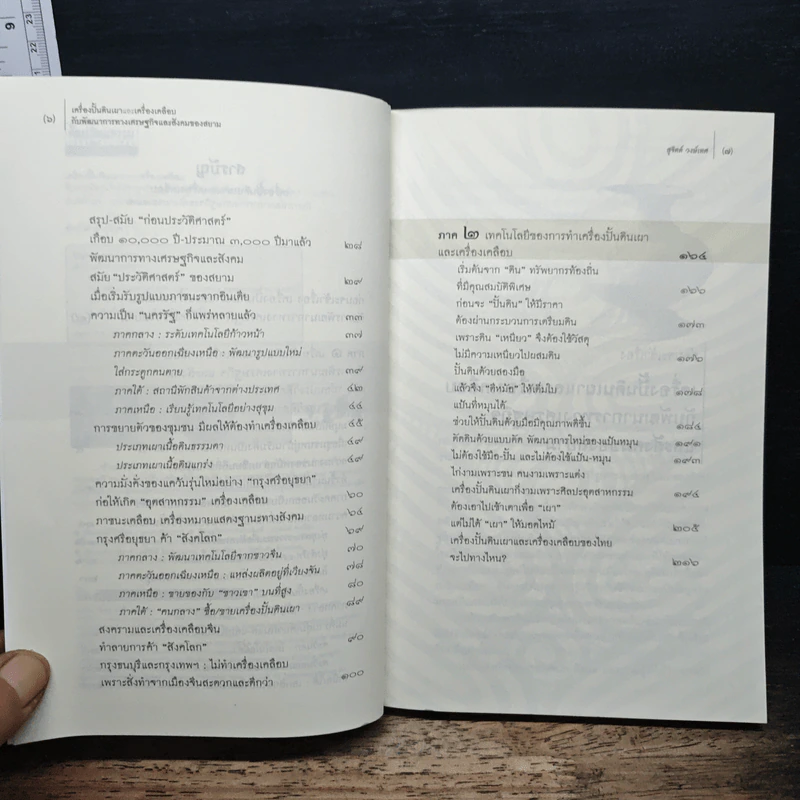 9
23
22
21
(๖)
เครื่องปั้นดินเผาและเครื่องเคลือบ
กับพัฒนาการทางเศรษฐกิจและสังคมของสยาม
สรุป-สมัย "ก่อนประวัติศาสตร์"
เกือบ ๑๐,๐๐๐ ปี-ประมาณ ๓,๐๐๐ ปีมาแล้ว
พัฒนาการทางเศรษฐกิจและสังคม
สมัย "ประวัติศาสตร์" ของสยาม
เมื่อเริ่มรับรูปแบบภาชนะจากอินเดีย
ความเป็น "นครรัฐ" ที่แพร่หลายแล้ว ๓๓
ภาคกลาง : ระดับเทคโนโลยีก้าวหน้า ๓๗
ภาคตะวันออกเฉียงเหนือ : พัฒนารูปแบบใหม่
ใส่กระดูกคนตาย ๓๙
ภาคใต้ : สถานีพักสินค้าจากต่างประเทศ ๔๒
ภาคเหนือ : เรียนรู้เทคโนโลยีอย่างสุขุม ๔๔
การขยายตัวของชุมชน มีผลให้ต้องทำเครื่องเคลือบ ๔๕
ประเภทเผาเนื้อดินธรรมดา ๔๙
ประเภทเผาเนื้อดินแกร่ง ๔๙
ความมั่งคั่งของแคว้นรุ่นใหม่อย่าง "กรุงศรีอยุธยา"
ก่อให้เกิด "อุตสาหกรรม" เครื่องเคลือบ ๖๐
ภาชนะเคลือบ เครื่องหมายแสดงฐานะทางสังคม ๖๔
กรุงศรีอยุธยา ค้า "สังคโลก" ๖๙
ภาคกลาง : พัฒนาเทคโนโลยีจากชาวจีน ๗๐
ภาคตะวันออกเฉียงเหนือ : แหล่งผลิตอยู่ที่เวียงจัน ๗๘
ภาคเหนือ : ขายของกับ "ชาวเขา" บนที่สูง ๘๐
ภาคใต้ : "คนกลาง" ซื้อ/ขายเครื่องปั้นดินเผา ๘๙
สงครามและเครื่องเคลือบจีน
ทำลายการค้า "สังคโลก" ๙๐
กรุงธนบุรีและกรุงเทพฯ : ไม่ทำเครื่องเคลือบ
เพราะสั่งทำจากเมืองจีนสะดวกและดีกว่า ๑๐๐
สุจิตต์ วงษ์เทศ (๗)
ภาค ๒ เทคโนโลยีของการทำเครื่องปั้นดินเผา
และเครื่องเคลือบ ๑๖๔
เริ่มต้นจาก "ดิน" ทรัพยากรท้องถิ่น
ที่มีคุณสมบัติพิเศษ ๑๖๖
ก่อนจะ "ปั้นดิน" ให้มีราคา
ต้องผ่านกระบวนการเตรียมดิน ๑๗๓
เพราะดิน "เหนียว" จึงต้องใช้วัสดุ
ไม่มีความเหนียวไปผสมดิน ๑๗๖
ปั้นดินด้วยสองมือ
แล้วจึง "ตีหม้อ" ให้เต็มใบ ๑๗๘
แป้นที่หมุนได้
ช่วยให้ปั้นดินด้วยมือมีคุณภาพดีขึ้น ๑๘๔
ตัดดินด้วยแบบตัด พัฒนาการใหม่ของแป้นหมุน ๑๙๑
ไม่ต้องใช้มือ-ปั้น และไม่ต้องใช้แป้น-หมุน ๑๙๓
ไก่งามเพราะขน คนงามเพราะแต่ง
เครื่องปั้นดินเผาก็งามเพราะศิลปะอุตสาหกรรม ๑๙๔
ต้องเอาไปเข้าเตาเพื่อ "เผา"
แต่ไม่ได้ "เผา" ให้มอดไหม้ ๒๐๕
เครื่องปั้นดินเผาและเครื่องเคลือบของไทย
จะไปทางไหน? ๒๑๖